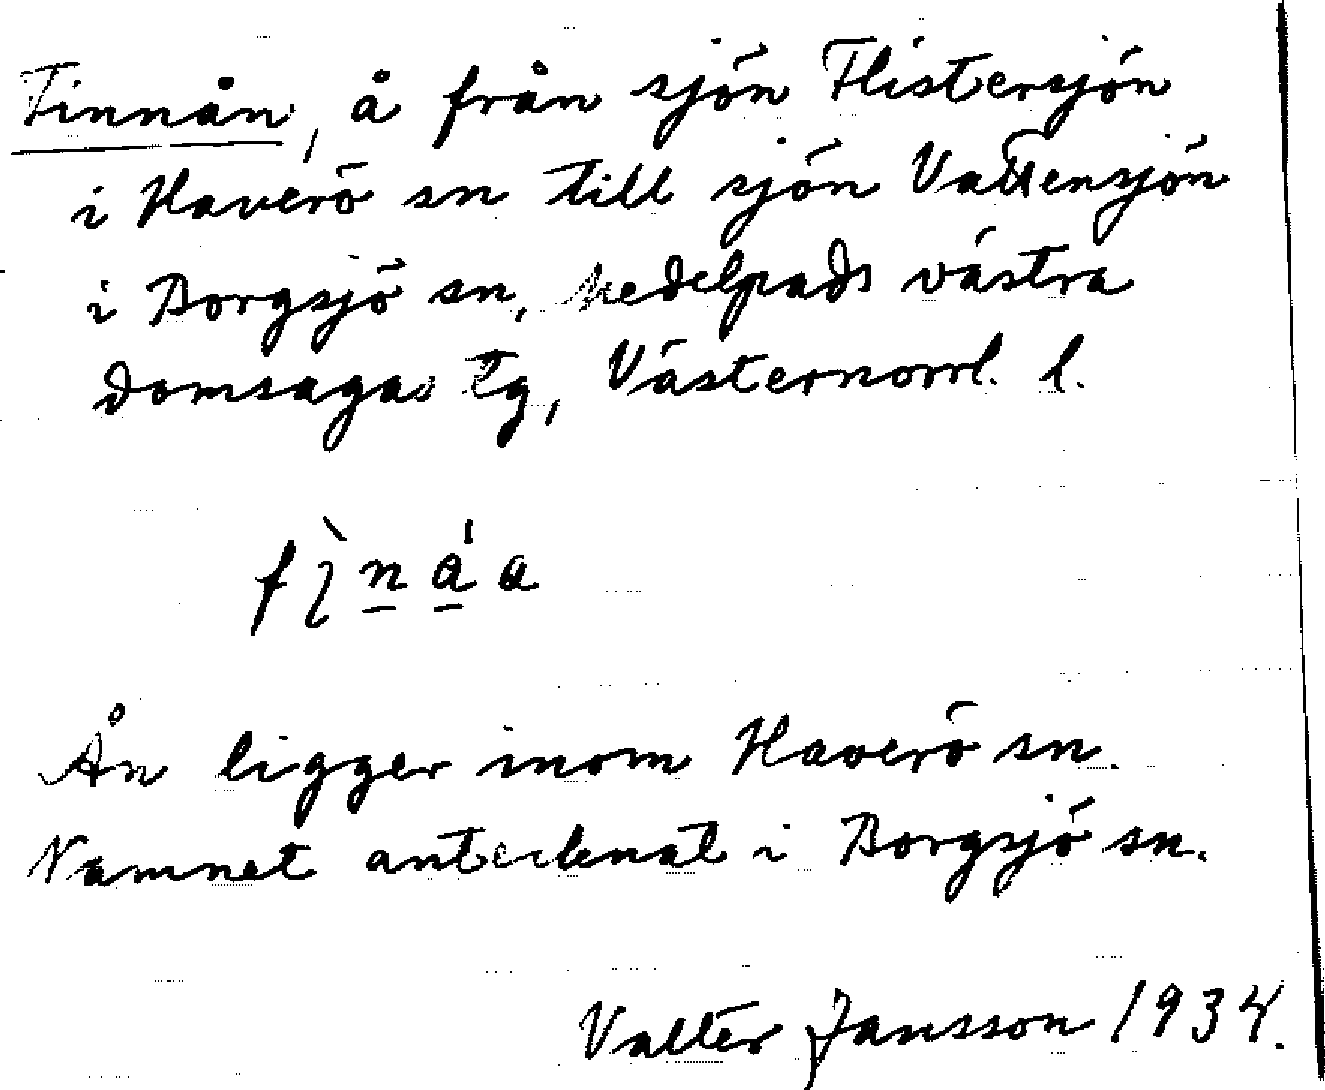 Finnån, å från sjön Flistersjön
i Haverö sn till sjön Vattensjön
i Borgsjö sn, Medelpads västra
domsagas tg, Västernorrl. l.
Ån ligger inom Haverö sn.
Namnet antecknat i Borgsjö sn.
Valter Jansson 1934.